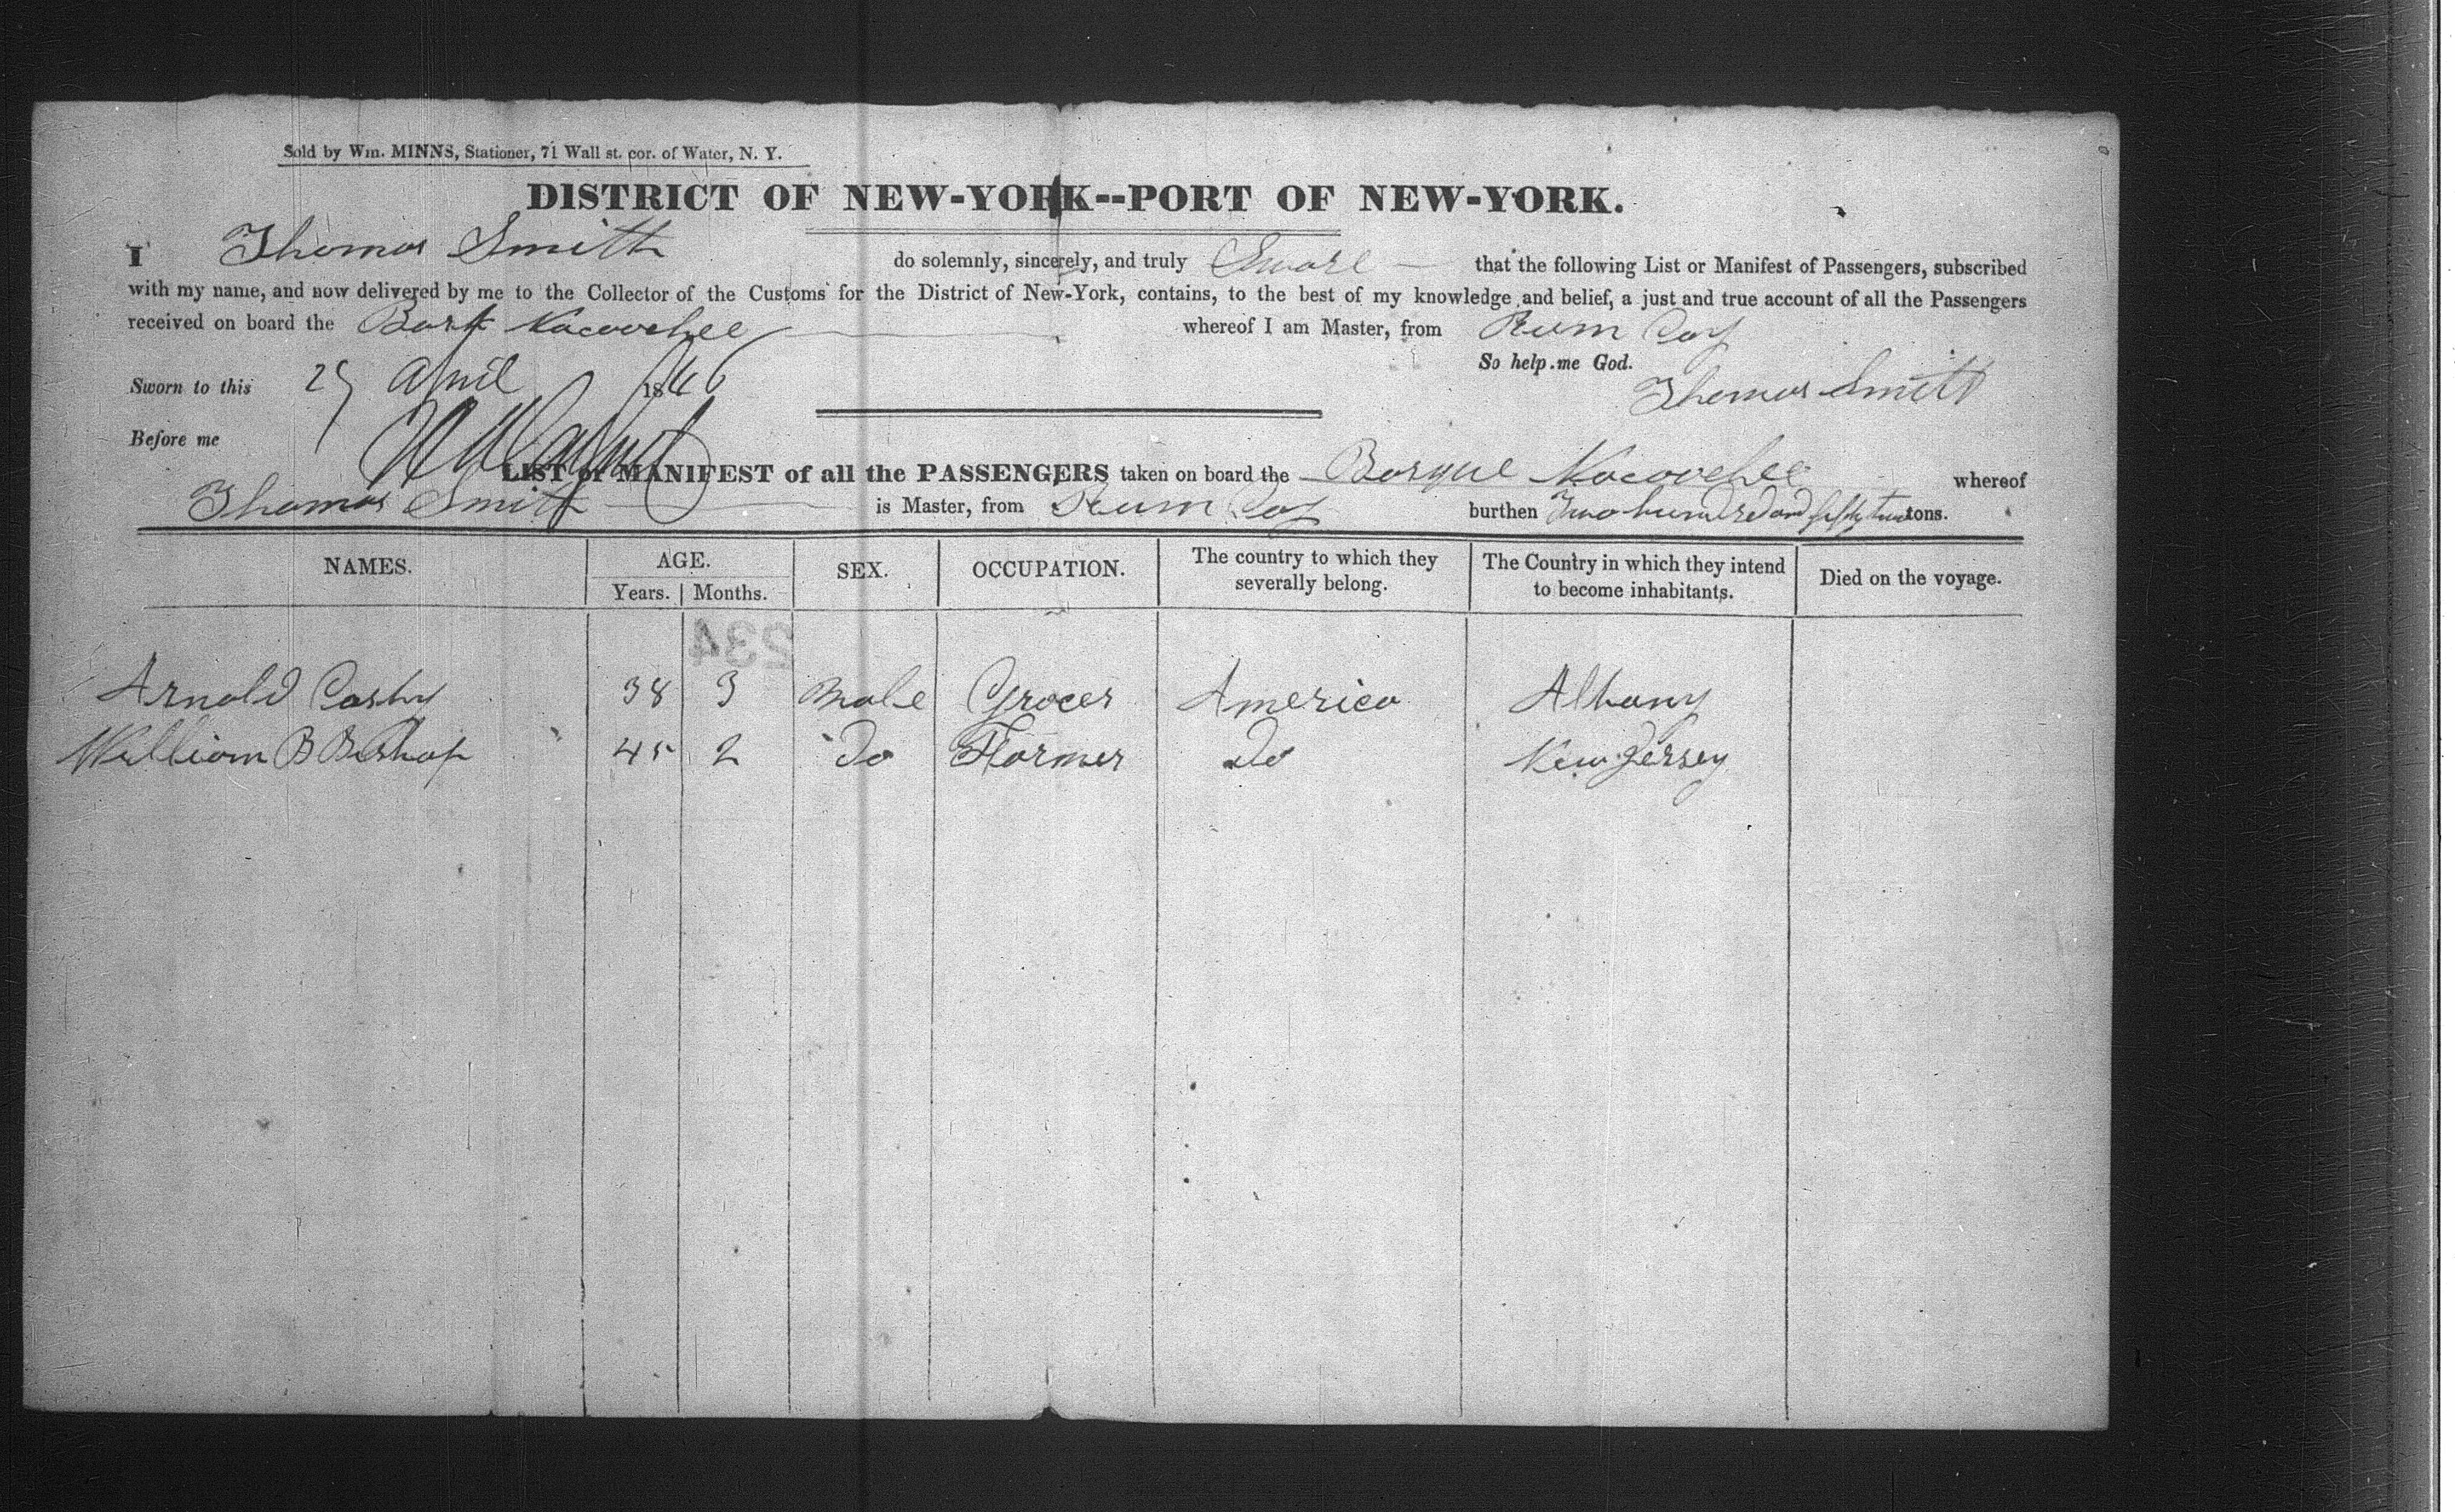 Sold by Wm. MINNS, Stationer, 71 Wall st. cor. of Water, N. Y.
DISTRICT OF NEW-YORK--PORT OF NEW-YORK.
I Thomas Smith do solemnly, sincerely, and truly Swore that the following List or Manifest of Passengers, subscribed
with my name, and now delivered by me to the Collector of the Customs for the District of New-York, contains, to the best of my knowledge and belief, a just and true account of all the Passengers
received on board the Bark Kacoochee whereof I am Master, from Rum Cay
So help me God.
Sworn to this 25 April 1846 Thomas Smith
Before me
LIST or MANIFEST of all the PASSENGERS taken on board the Barque Nacoochee whereof
Thomas Smith is Master, from Rum Cay burthen Two hundred and fifty two tons.
NAMES. AGE. SEX. OCCUPATION. The country to which they severally belong. The Country in which they intend to become inhabitants. Died on the voyage.
Years. Months.
234
Arnold 38 3 Male Grocer America Albany
William B Bishop 45 2 Do Farmer Do New Jersey